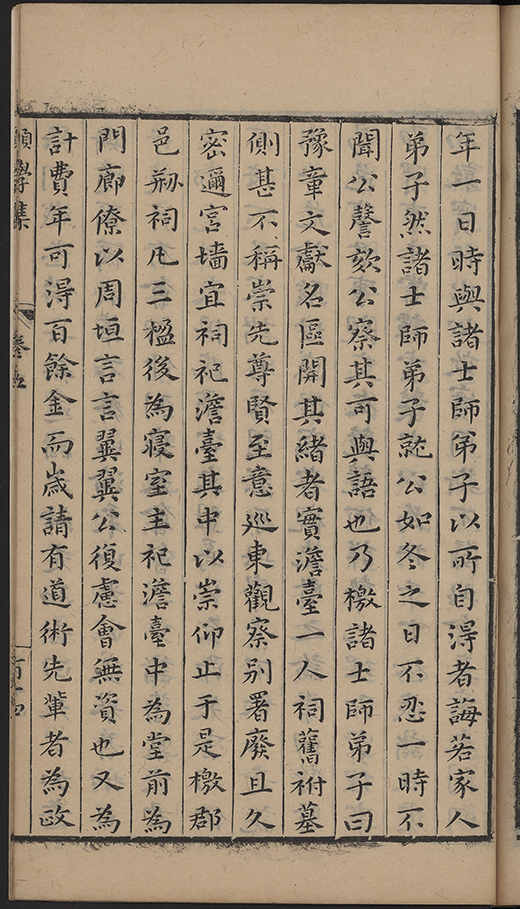 年一日時與諸士師弟子以所自淂者誨若家人
弟子然諸士師弟子就公如冬之日不忍一時不
聞公謦欬公察其可與語也乃檄諸士師弟子曰
豫章文獻名區開其緒者實澹臺一人祠舊祔墓
側甚不稱崇先尊賢至意巡東觀察别署廢且久
密邇宮墻宜祠祀澹臺其中以崇仰止于是檄郡
邑剏祠凡三楹後為寢室主祀澹臺中為堂前為
門廊僚以周垣言言翼翼公復慮會無資也又為
計費年可得百餘金而歲請有道術先輩者為政
學集
卷五